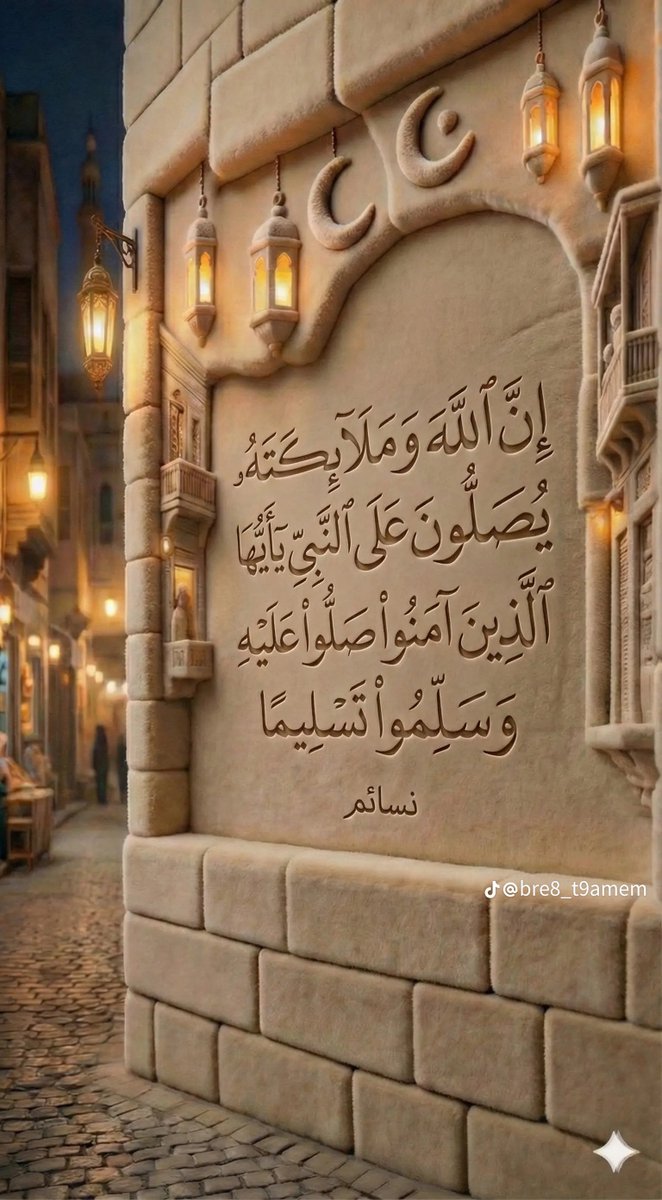 إِنَّ ٱللَّهَ وَمَلَآئِكَتَهُۥ
يُصَلُّونَ عَلَى ٱلنَّبِيِّ يَٰٓأَيُّهَا
ٱلَّذِينَ آمَنُوا۟ صَلُّوا۟ عَلَيْهِ
وَسَلِّمُوا۟ تَسْلِيمًا
نسائم
@bre8_t9amem